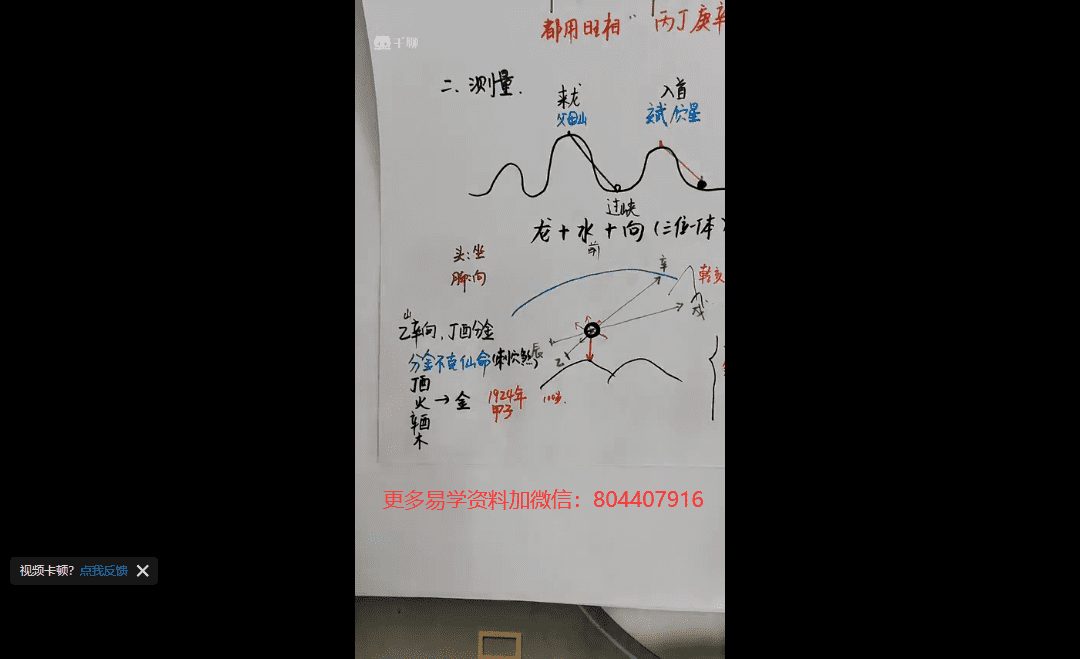 都用旺相" 丙丁庚辛
千聊
二、测量.
来龙
父母山
入首
玄武/穴星
过峡
龙+水+向(三位一体)
前
头:坐
脚:向
辛
乾亥
戌
山
乙辛向,丁酉分金
辰
乙
分金不克仙命(刺穴煞)
丁酉
火→金
1924年
甲子
辛酉
木
更多易学资料加微信：804407916
视频卡顿? 点我反馈